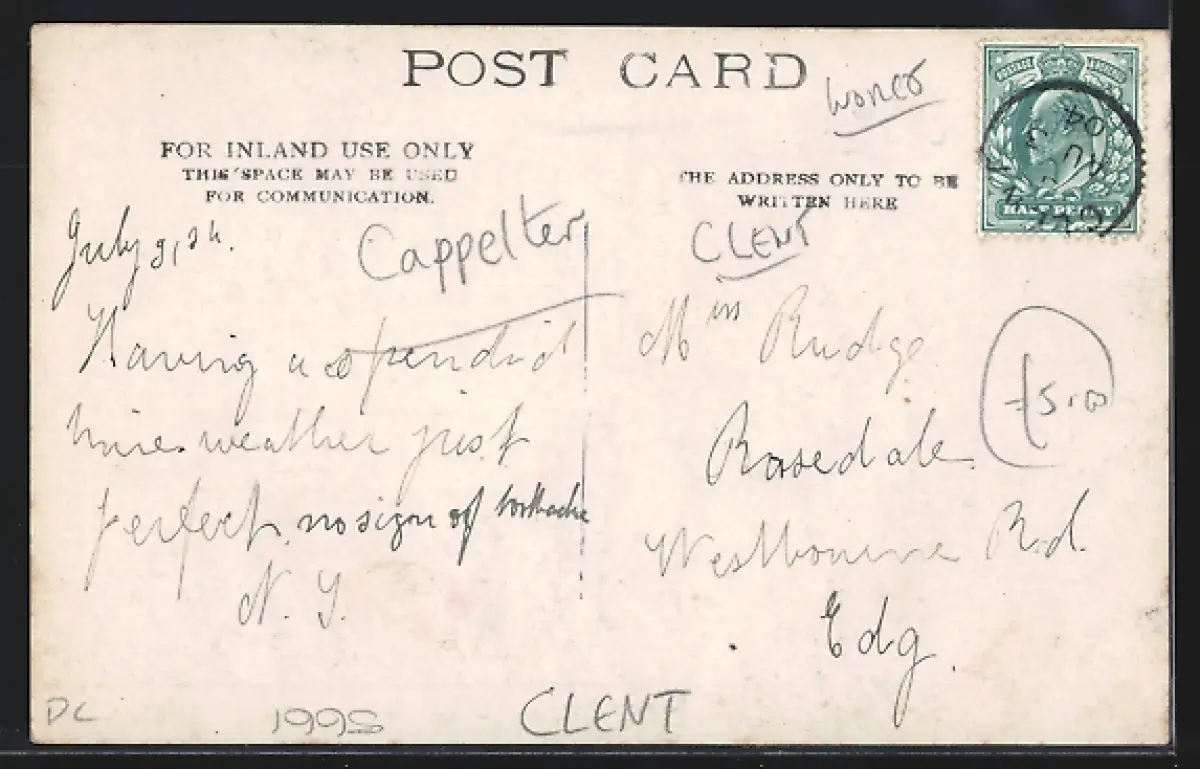 POST CARD
Worcs
FOR INLAND USE ONLY
THIS SPACE MAY BE USED
FOR COMMUNICATION.
THE ADDRESS ONLY TO BE
WRITTEN HERE
HALF PENNY
July
Cappelter
CLENT
Having a splendid
time weather just
perfect, no sign of toothache
N. Y.
Miss Rudge
Rosedale
Westbourne Rd.
Edg.
£5.00
DC
1995
CLENT